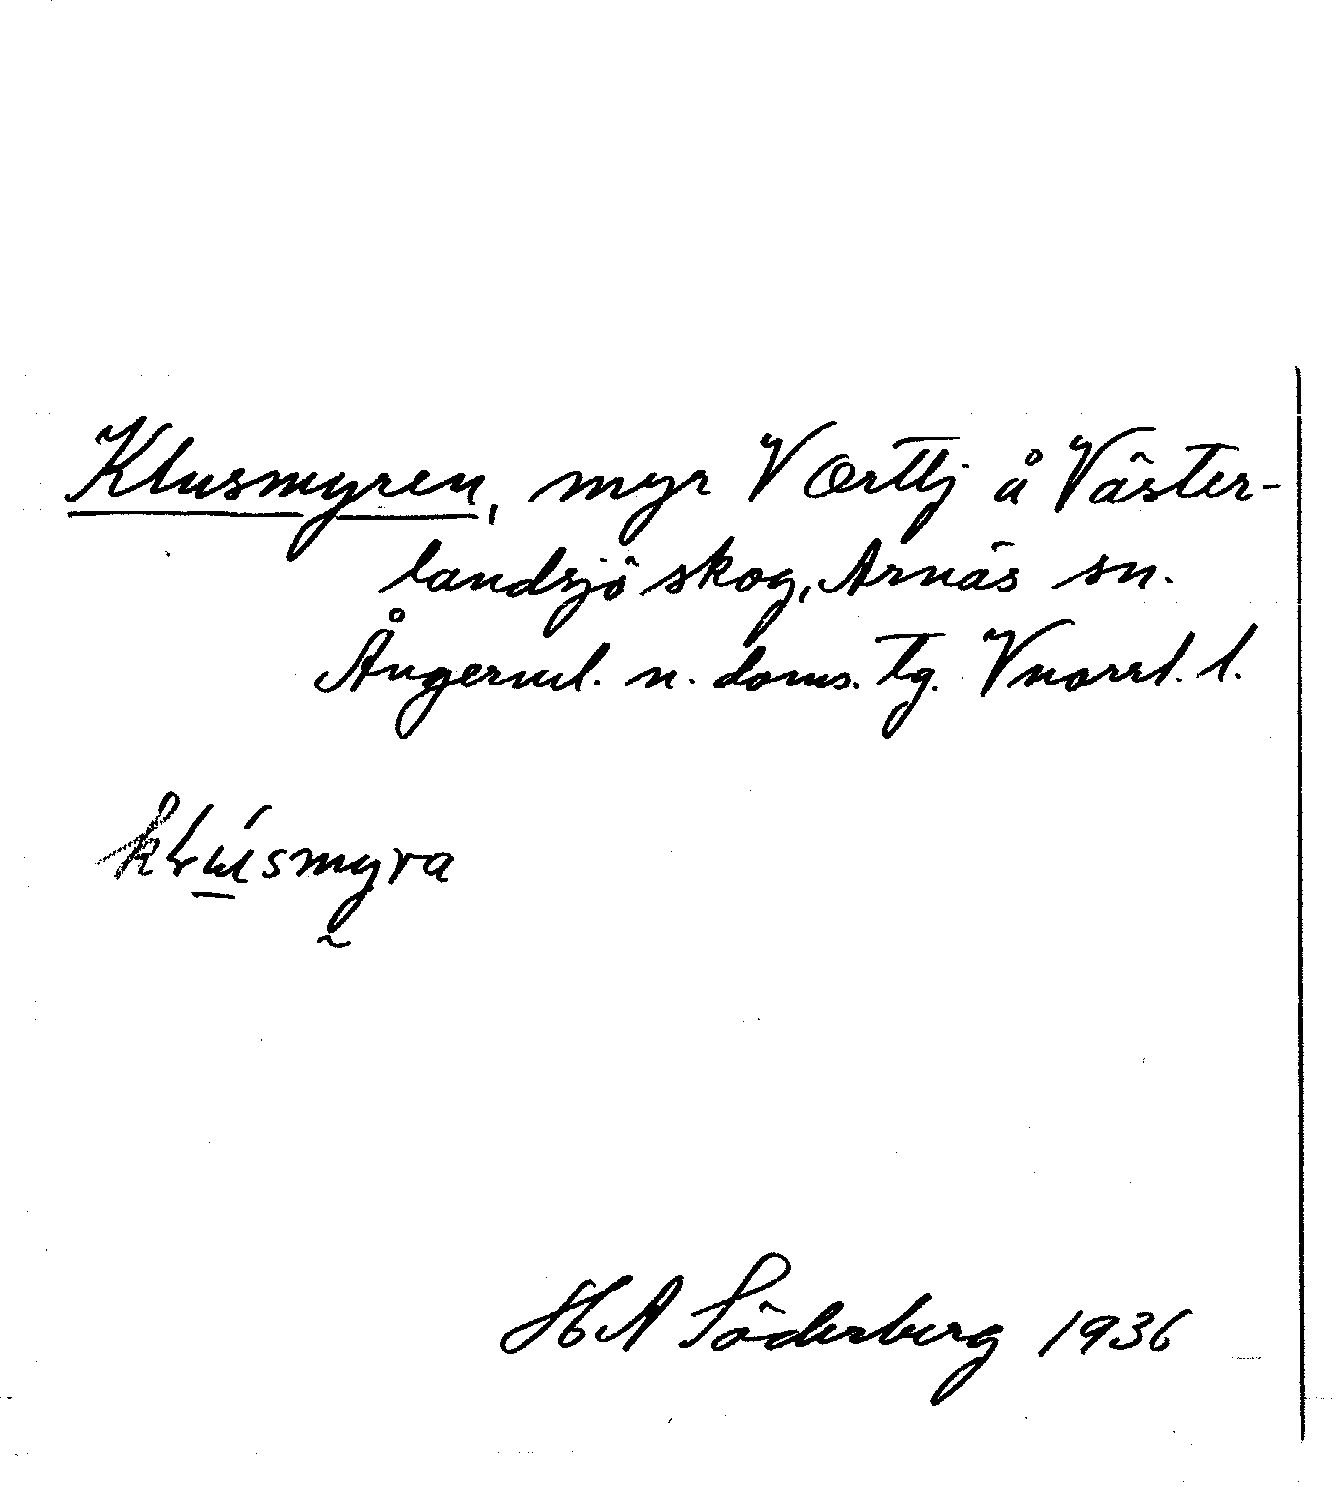 Klusmyren, myr V Orttj å Väster-
landsjö skog, Arnäs sn.
Ångerml. n. doms. tg. Vnorrl. l.
klúsmyra
H A Söderberg 1936